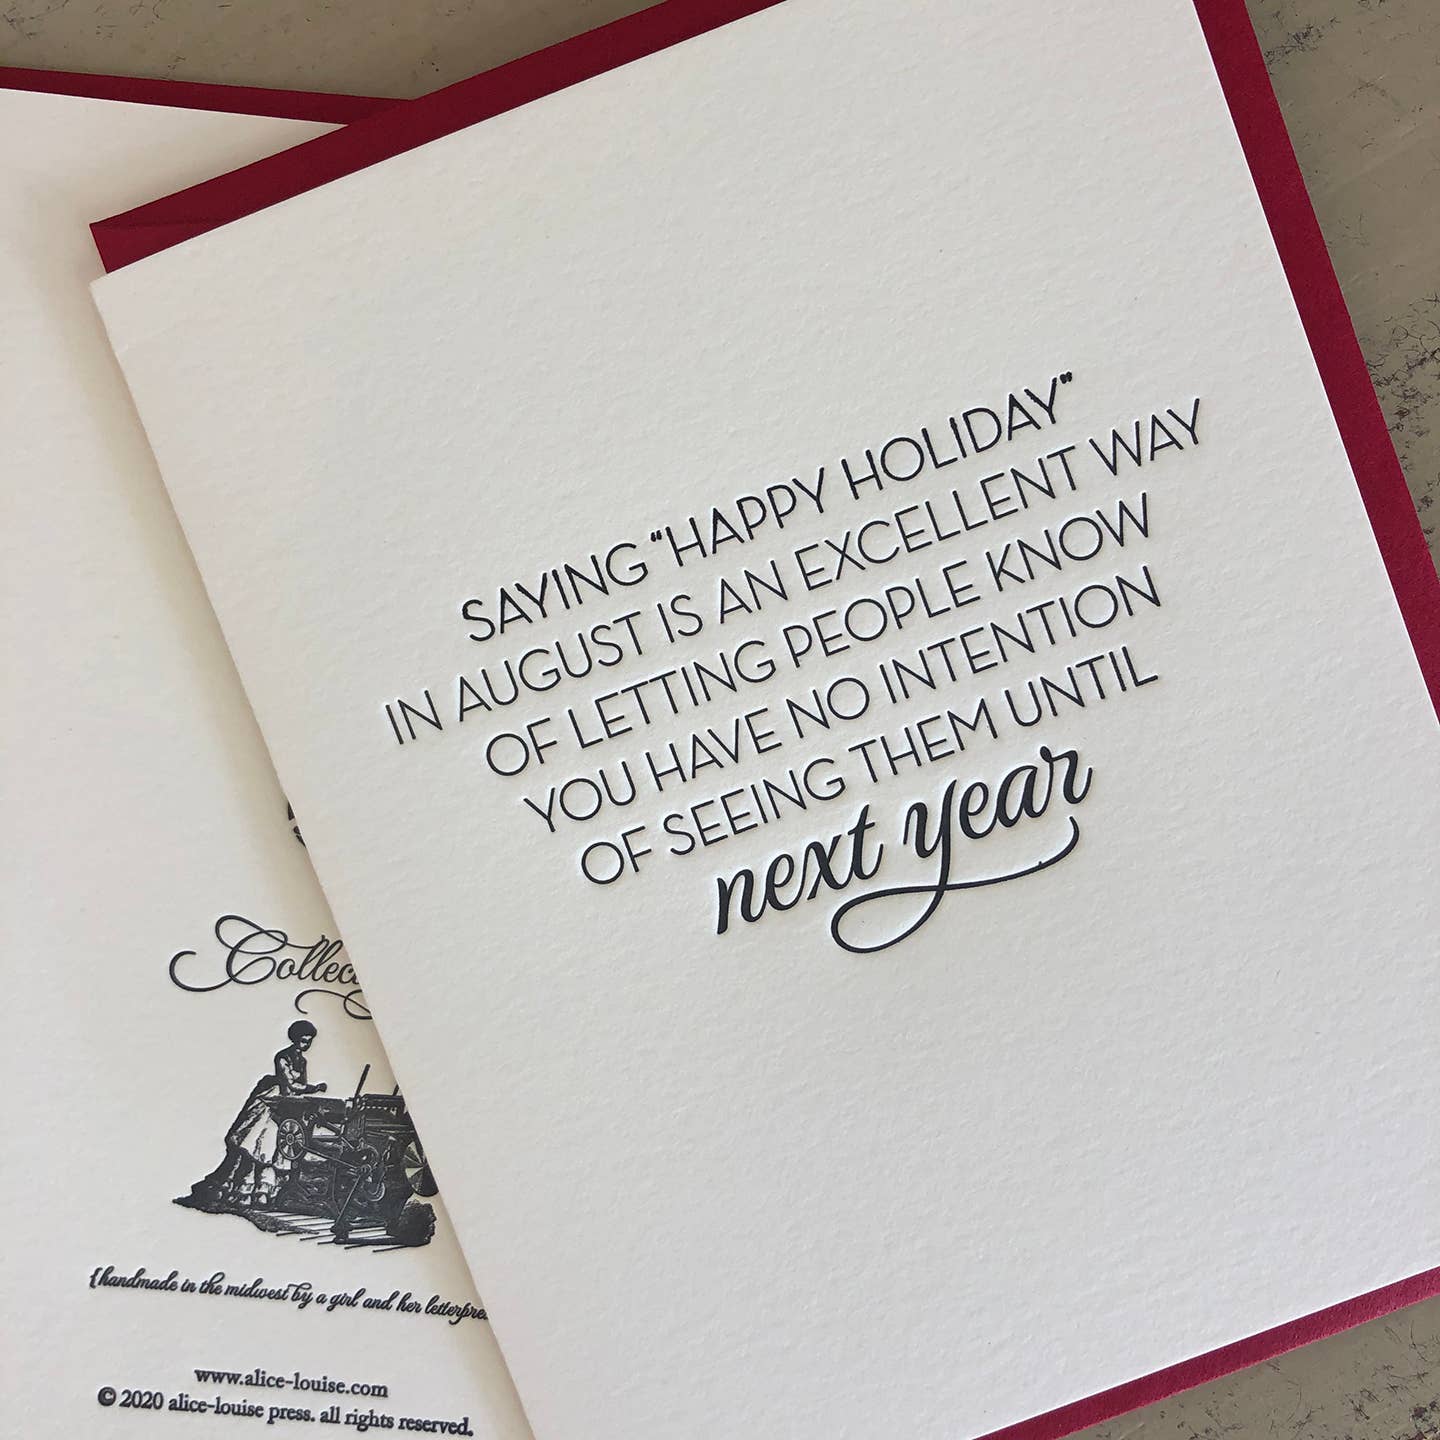 SAYING "HAPPY HOLIDAY"
IN AUGUST IS AN EXCELLENT WAY
OF LETTING PEOPLE KNOW
YOU HAVE NO INTENTION
OF SEEING THEM UNTIL
next year
{handmade in the midwest by a girl and her
www.alice-louise.com
© 2020 alice-louise press. all rights reserved.